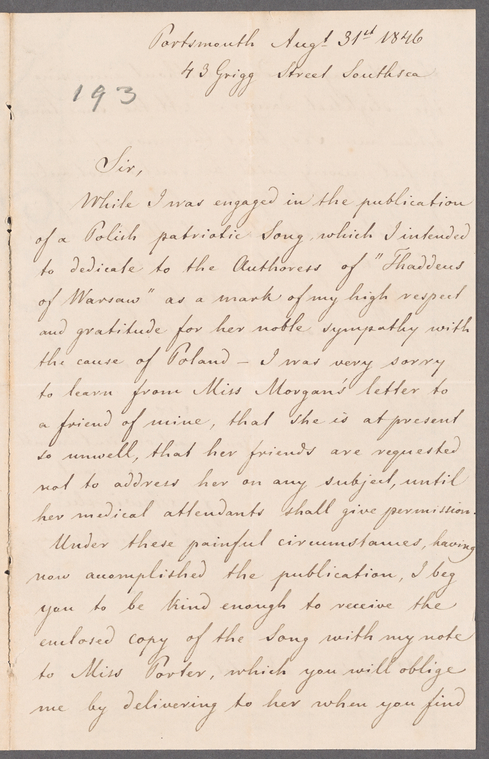 Portsmouth Augt 31st 1846
43 Grigg Street Southsea
193
Sir,
While I was engaged in the publication
of a Polish patriotic Song, which I intended
to dedicate to the Authoress of "Thaddeus
of Warsaw" as a mark of my high respect
and gratitude for her noble sympathy with
the cause of Poland – I was very sorry
to learn from Miss Morgan's letter to
a friend of mine, that she is at present
so unwell, that her friends are requested
not to address her on any subject, until
her medical attendants shall give permission.
Under these painful circumstances, having
now acomplished the publication, I beg
you to be kind enough to receive the
enclosed copy of the Song with my note
to Miss Porter, which you will oblige
me by delivering to her when you find